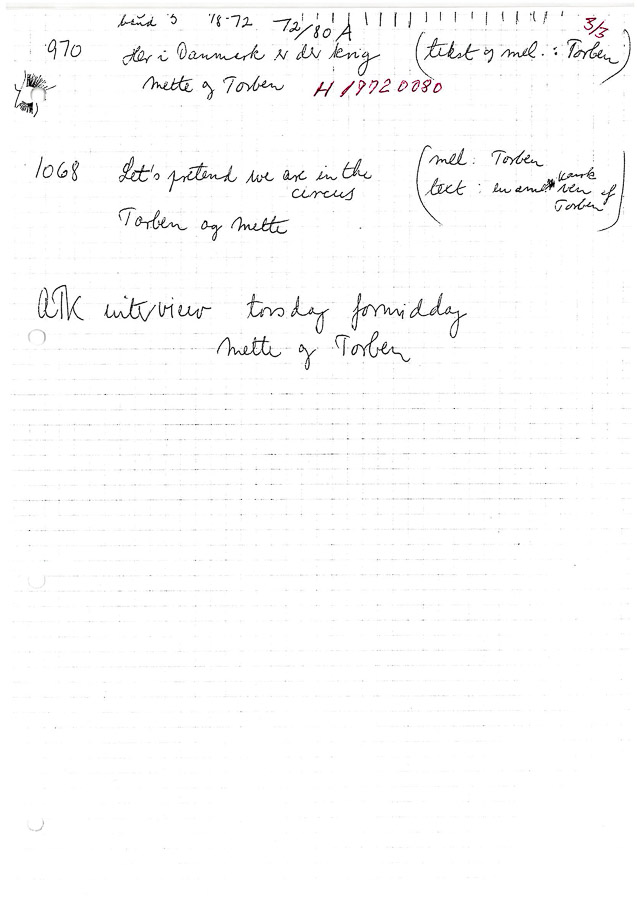 bånd 3 1/8-72 72/80 A 3/3
970 Her i Danmark er der krig (tekst og mel. : Torben)
Mette og Torben H 19720080
1068 Let's pretend we are in the circus (mel. Torben
text : en amerikansk ven af Torben)
Torben og Mette
ATK interview torsdag formiddag
Mette og Torben